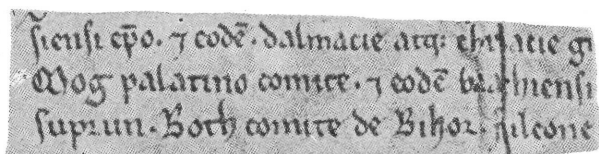 siensi ep̄o. ⁊ eodē. dalmacie atq; chrẜacie g̃i
Mog palatino comite. ⁊ eodē bachiensi
suprun. Both comite de Bihor. filcone